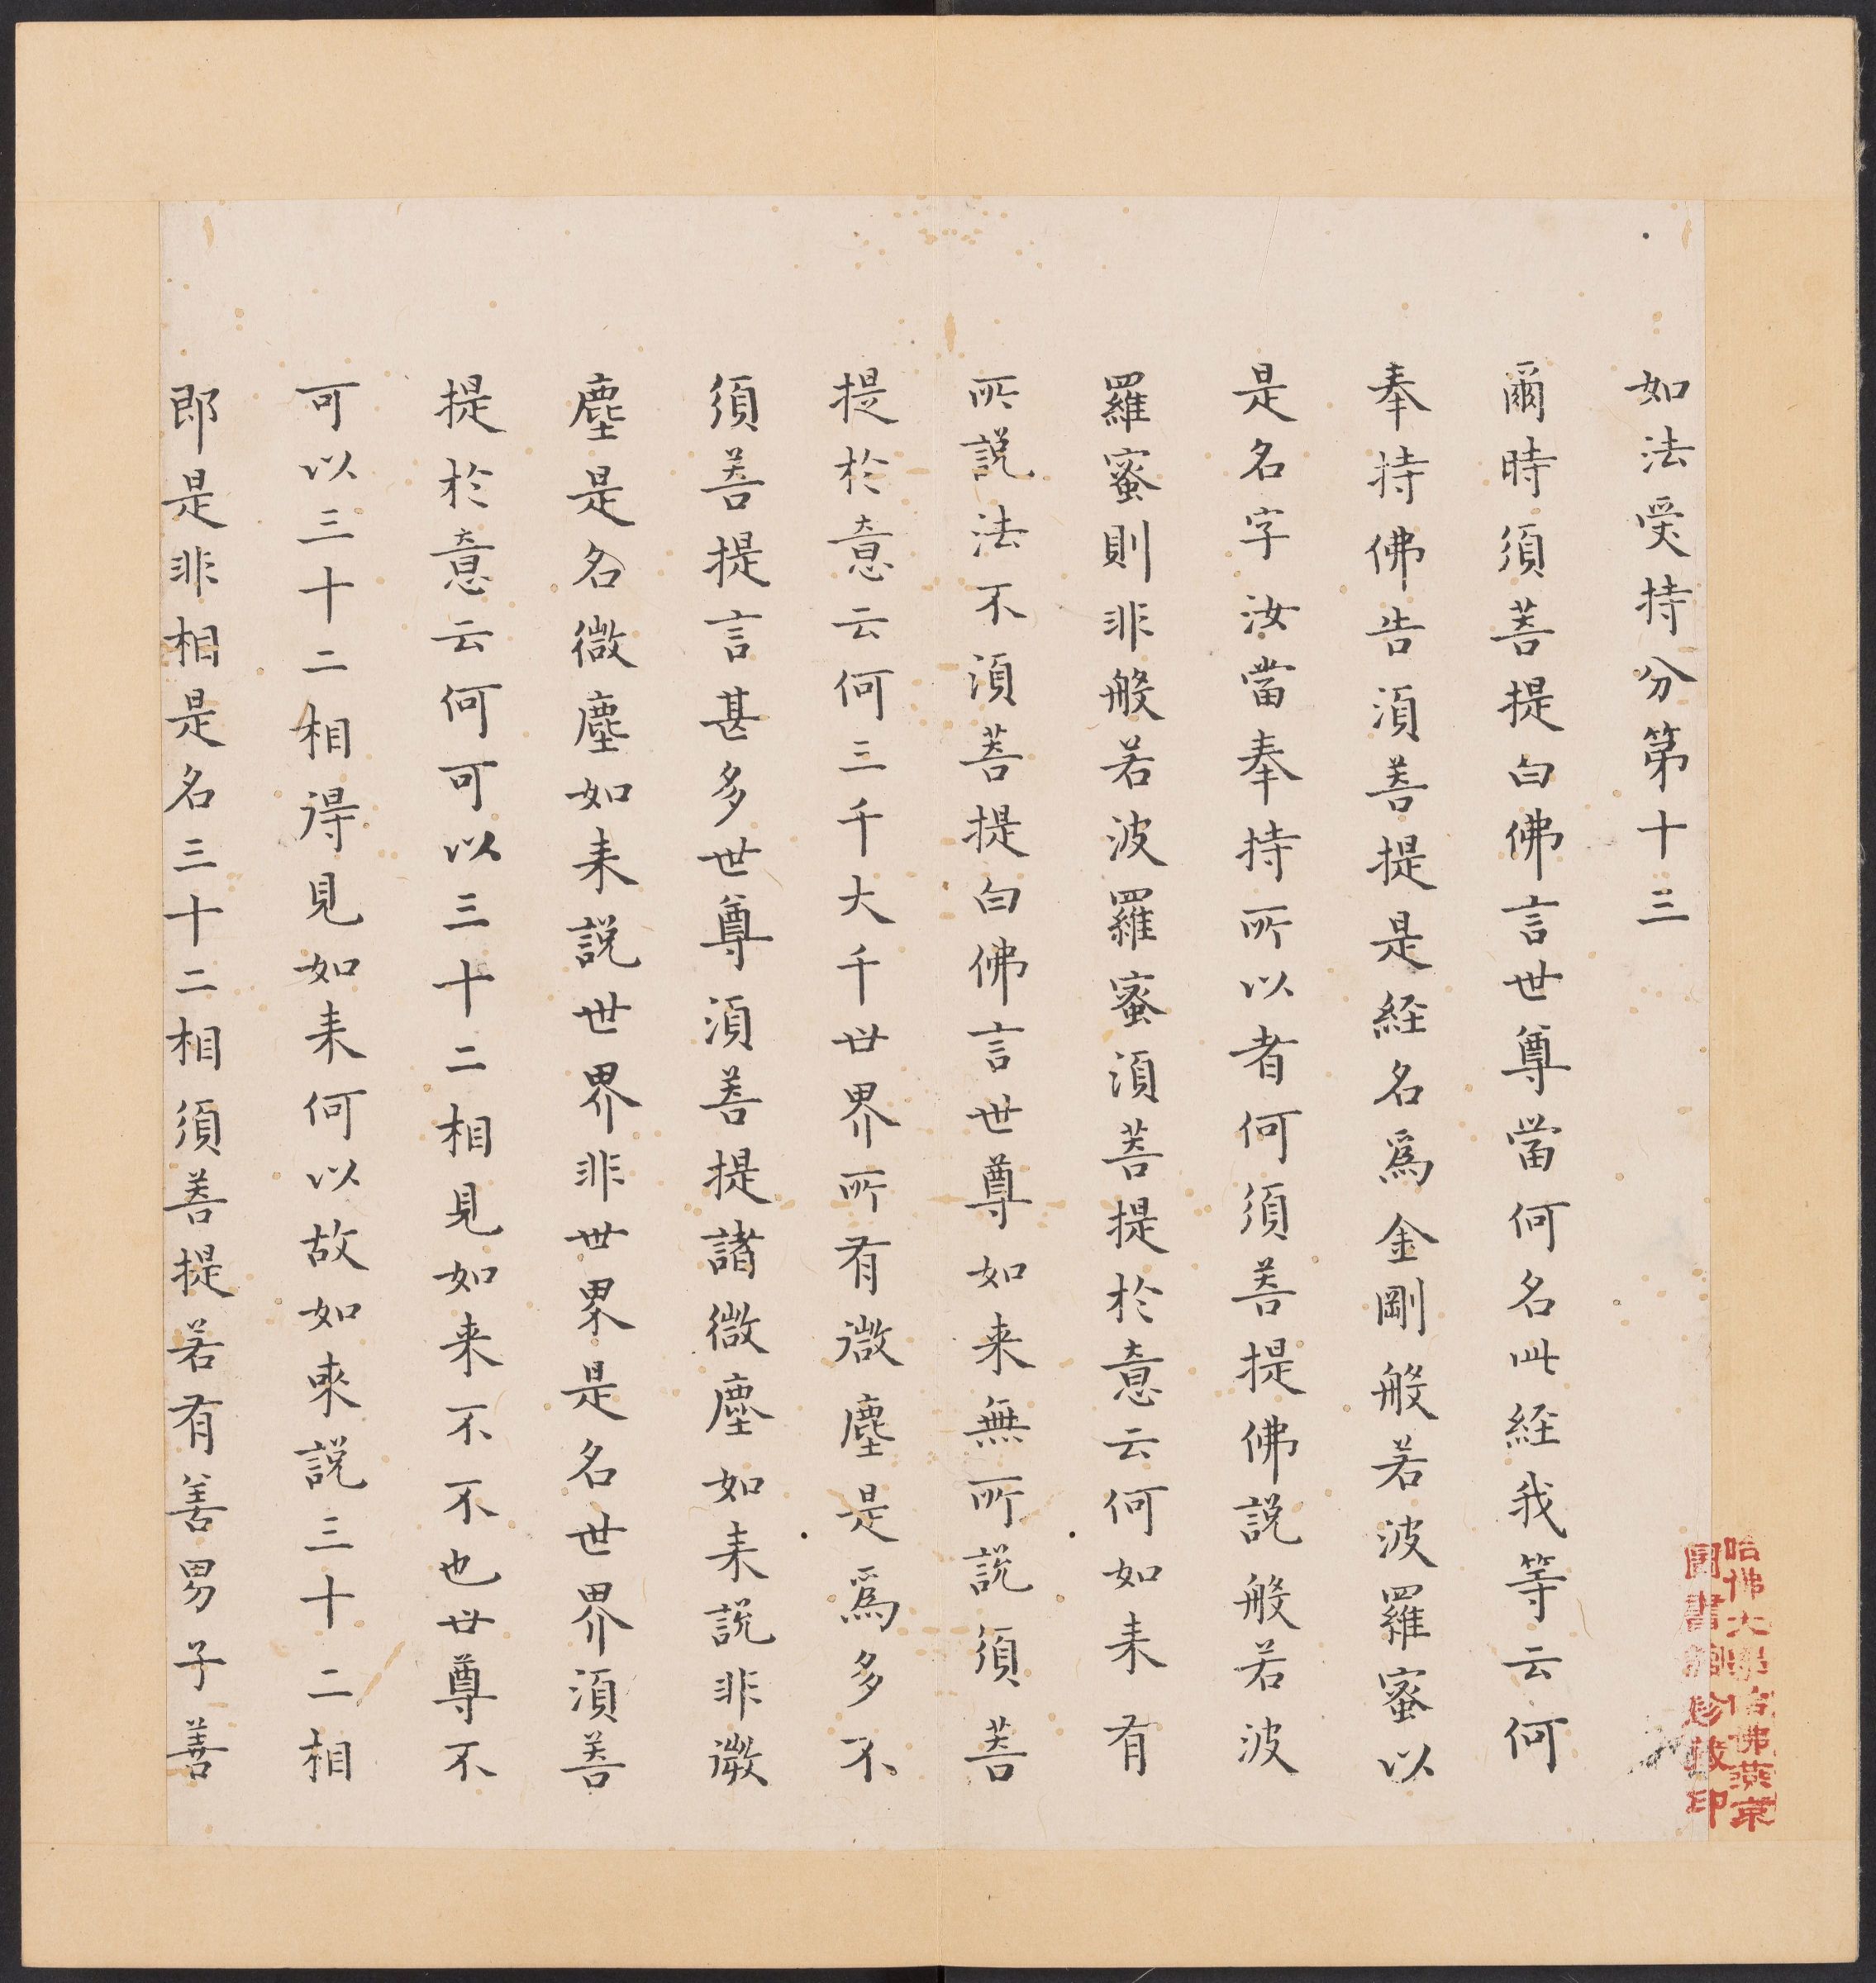 如法受持分第十三
爾時須菩提白佛言世尊當何名此經我等云何
奉持佛告須菩提是經名爲金剛般若波羅蜜以
是名字汝當奉持所以者何須菩提佛說般若波
羅蜜則非般若波羅蜜須菩提於意云何如来有
所說法不須菩提白佛言世尊如来無所說須菩
提於意云何三千大千世界所有微塵是爲多不
須菩提言甚多世尊須菩提諸微塵如来說非微
塵是名微塵如来說世界非世界是名世界須菩
提於意云何可以三十二相見如来不不也世尊不
可以三十二相得見如来何以故如來說三十二相
即是非相是名三十二相須菩提若有善男子善
哈佛大學哈佛燕京
圖書館珍藏印